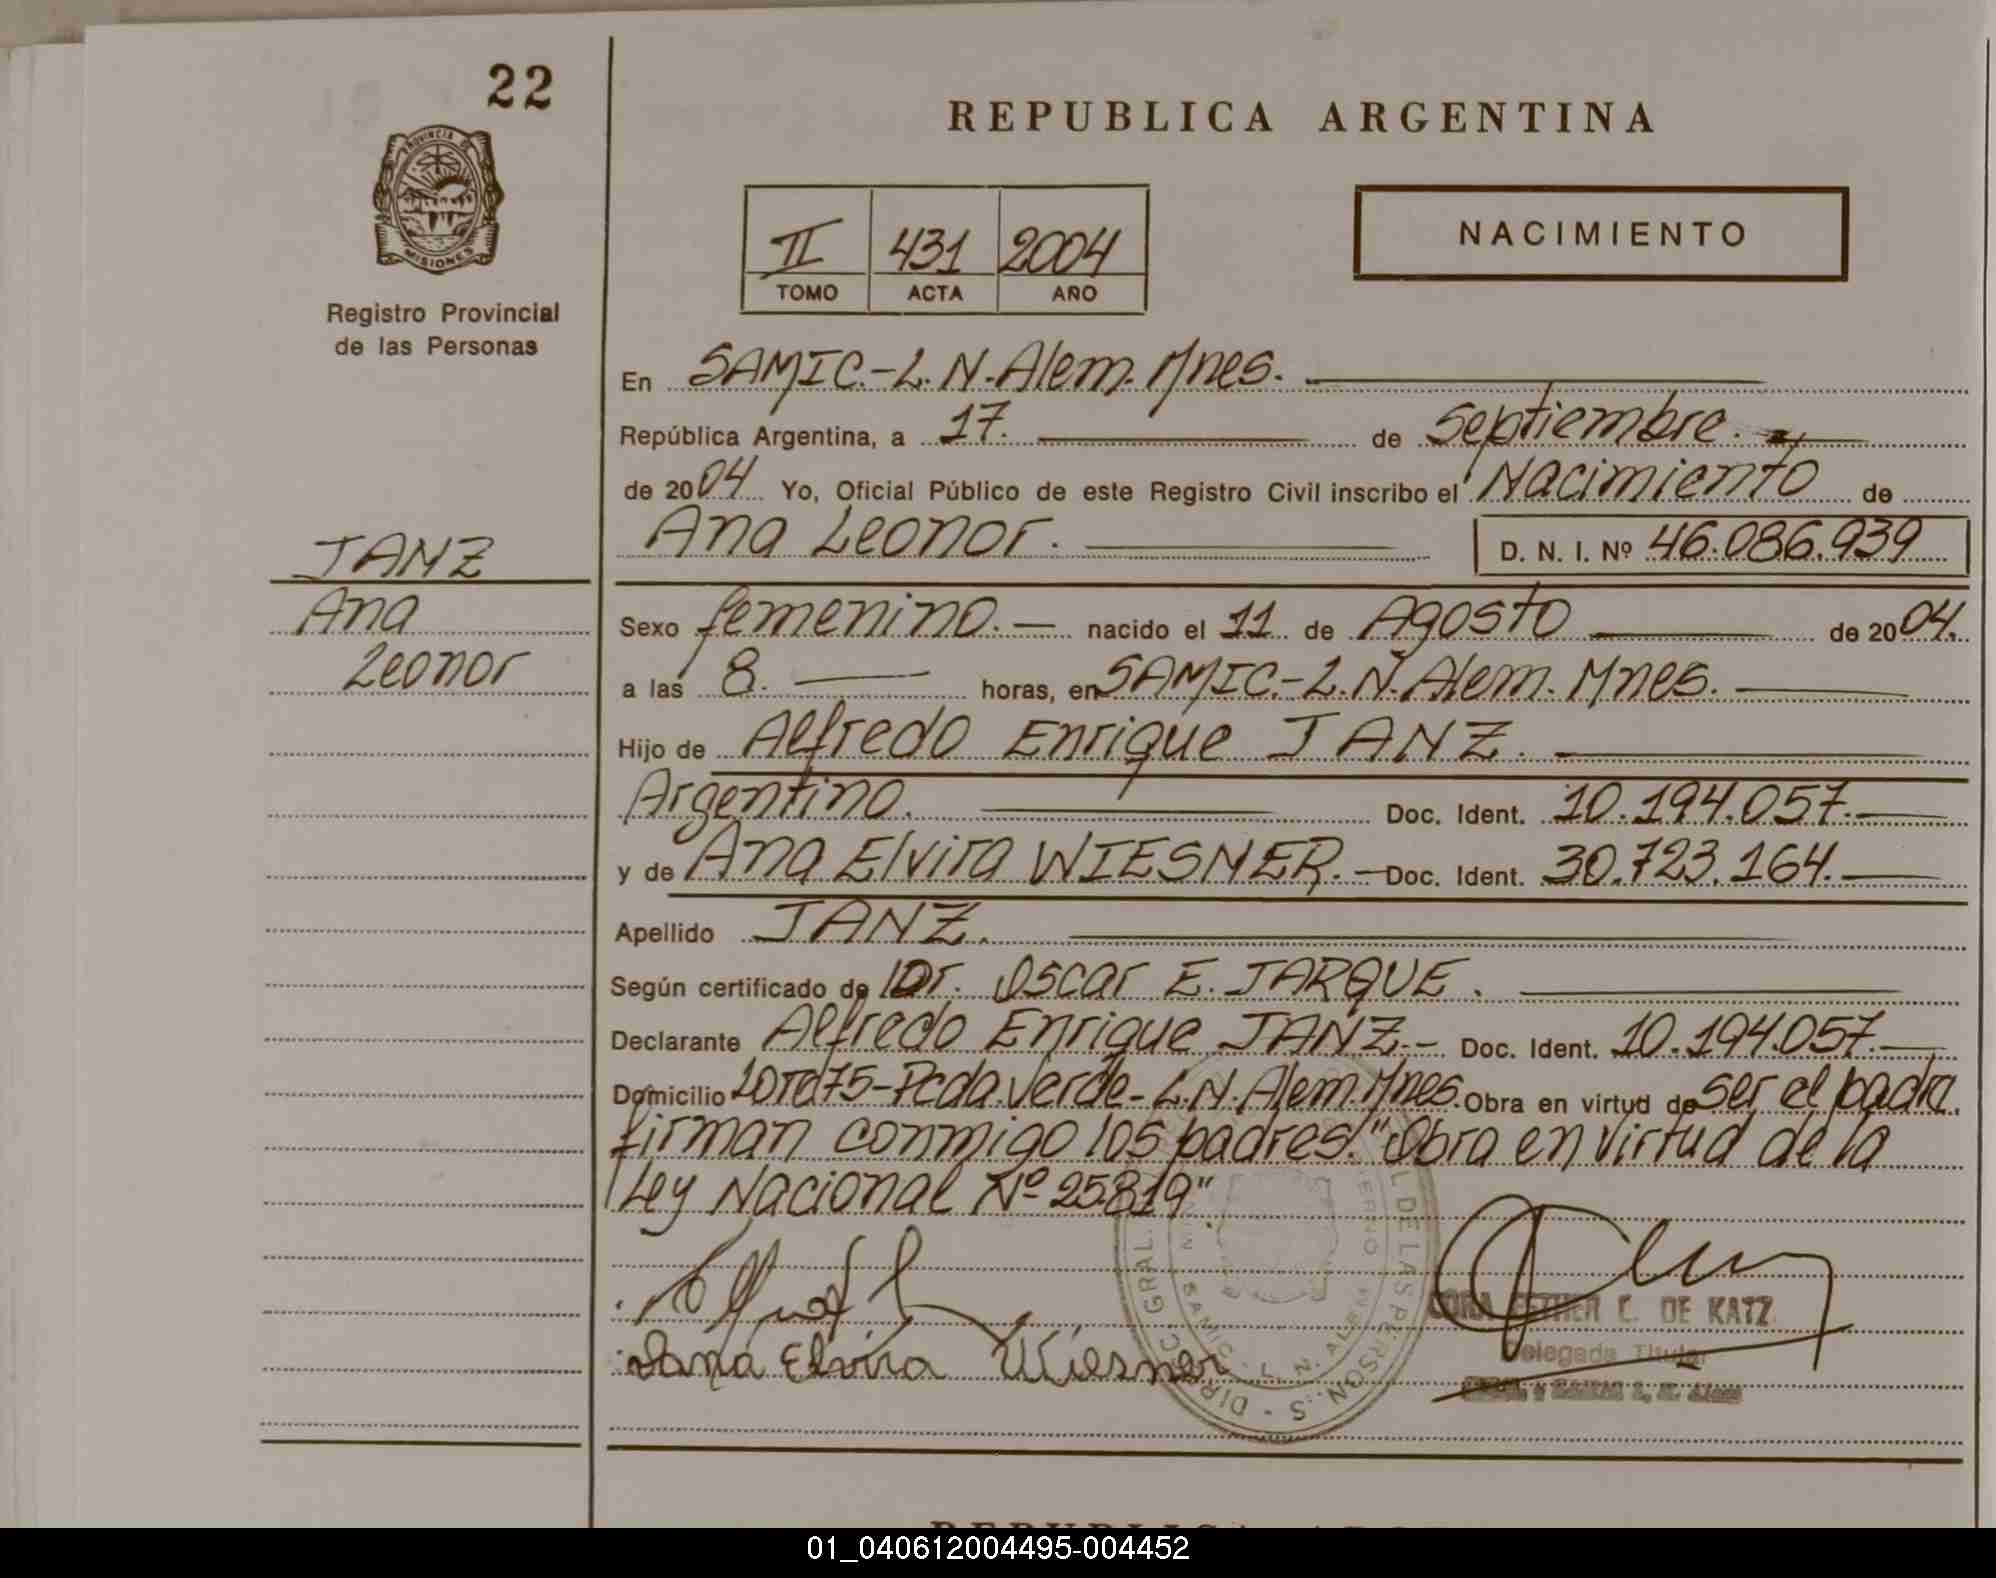 22
REPUBLICA ARGENTINA
PROVINCIA DE
MISIONES
Registro Provincial
de las Personas
NACIMIENTO
II 431 2004
TOMO ACTA AÑO
En SAMIC.-L.N.Alem.Mnes.
República Argentina, a 17. de septiembre.
de 2004 Yo, Oficial Público de este Registro Civil inscribo el Nacimiento de
Ana Leonor. D. N. I. Nº 46.086.939
JANZ
Ana
Leonor
Sexo femenino.— nacido el 11 de Agosto de 2004.
a las 8. horas, en SAMIC.-L.N.Alem. Mnes.
Hijo de Alfredo Enrique JANZ.
Argentino. Doc. Ident. 10.194.057.—
y de Ana Elvira WIESNER.— Doc. Ident. 30.723.164.—
Apellido JANZ.
Según certificado de Dr. Oscar E. JARQUE.
Declarante Alfredo Enrique JANZ.- Doc. Ident. 10.194.057.—
Domicilio Lote 75-Pcda.Verde-L.N.Alem.Mnes. Obra en virtud de ser el padre.
firman conmigo los padres."Obra en virtud de la
Ley Nacional Nº 25819".
Elvira Wiesner
CORA ESTHER C. DE KATZ
Delegada Titular
DIRECC. GRAL. DE LAS PERSON.
SAMIC - L. N. ALEM
REPUBLICA
01_040612004495-004452